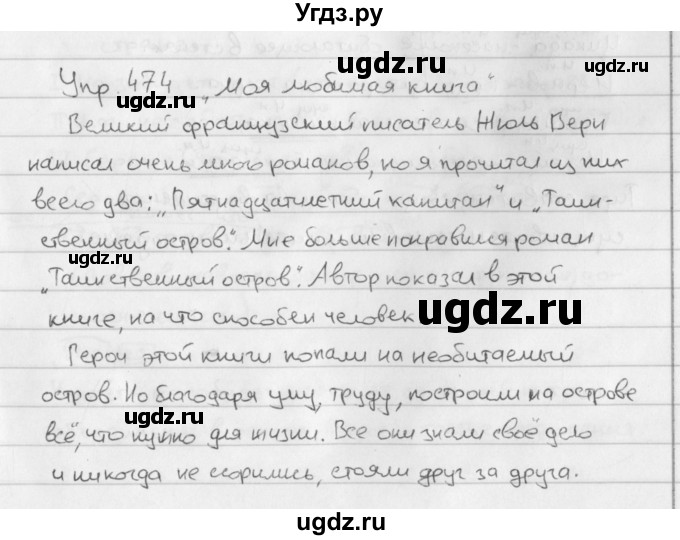 Угдз.ру
Упр. 474 „Моя любимая книга“
Великий французский писатель Жюль Верн
написал очень много романов, но я прочитал из них
всего два: „Пятнадцатилетний капитан“ и „Таин-
ственный остров“. Мне больше понравился роман
„Таинственный остров“. Автор показал в этой
книге, на что способен человек
Герои этой книги попали на необитаемый
остров. Но благодаря уму, труду, построили на острове
всё, что нужно для жизни. Все они знали своё дело
и никогда не ссорились, стояли друг за друга.
ugdz.ru
ugdz.ru
ugdz.ru
ugdz.ru
ugdz.ru
ugdz.ru
ugdz.ru
ugdz.ru
ugdz.ru
ugdz.ru